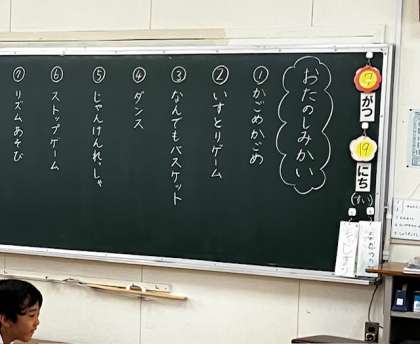 7
がつ
19
にち
(すい)
おたのしみかい
①かごめかごめ
②いすとりゲーム
③なんでもバスケット
④ダンス
⑤じゃんけんれっしゃ
⑥ストップゲーム
⑦リズムあそび